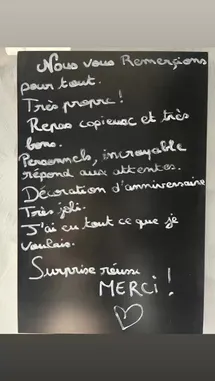 Nous vous Remerçions
pour tout.
Très propre !
Repas copieux et très
bons.
Personnels, incroyable
répond aux attentes.
Décoration d'anniversaire
Très joli.
J'ai eu tout ce que je
voulais.
Surprise réussi
MERCI !